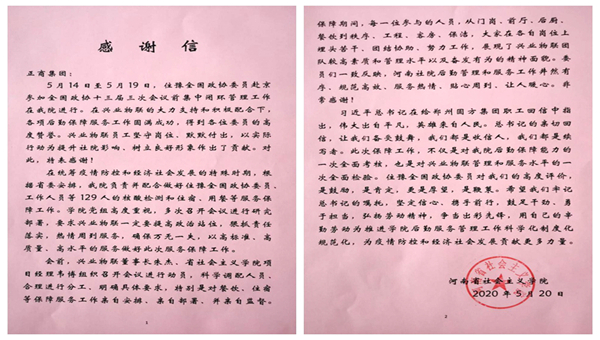 感 谢 信
正商集团：
5月14日至5月19日，住豫全国政协委员赴京
参加全国政协十三届三次会议前集中闭环管理工作
在我院进行。在兴业物联的大力支持和积极配合下，
各项后勤保障服务工作圆满成功，得到各位委员的高
度赞誉。兴业物联员工坚守岗位，默默付出，以实际
行动为提升社院影响，树立良好形象作出了贡献。对
此，特表感谢！
在统筹疫情防控和经济社会发展的特殊时期，根
据省委安排，我院负责并配合做好住豫全国政协委员
工作人员等129人的核酸检测和住宿、用餐等服务保
障工作。学院党组高度重视，多次召开会议进行研究
部署，要求兴业物联一定要提高政治站位，狠抓责任
落实，热情周到服务，确保万无一失，以高标准、高
质量、高水平的服务做好此次服务保障工作。
会前，兴业物联董事长朱杰、省社会主义学院项
目经理韦伟组织召开会议进行动员，科学调配人员，
合理进行分工，明确具体要求，特别是对餐饮、住宿
等保障工作亲自安排、亲自部署、并亲自监督。
1
保障期间，每一位参与的人员，从门岗、前厅、后厨、
餐饮到秩序、工程、客房、保洁，大家在各自岗位上
埋头苦干、团结协助、努力工作，展现了兴业物联团
队较高素质和管理水平以及奋发有为的精神面貌。委
员们一致反映，河南社院后勤管理和服务工作井然有
序、规范高效、服务热情、贴心周到、让人暖心。非
常感谢！
习近平总书记在给郑州圆方集团职工回信中指
出，伟大出自平凡，英雄来自人民。总书记的亲切回
信，让我们备受鼓舞，我们都是收信人，我们都是续
写者。此次保障工作，不仅是对我院后勤保障能力的
一次全面考核，也是对兴业物联管理和服务水平的一
次全面检验。住豫全国政协委员对我们的高度评价，
是鼓励，是肯定，更是厚望，是鞭策。希望我们牢记
总书记的嘱托，坚定信心，携手前行，鼓足干劲、勇
于担当，弘扬劳动精神，争当出彩先锋，用自己的辛
勤劳动为推进学院后勤服务管理工作科学化制度化
规范化，为疫情防控和经济社会发展贡献更多力量。
河南省社会主义学院
2020年5月20日
2